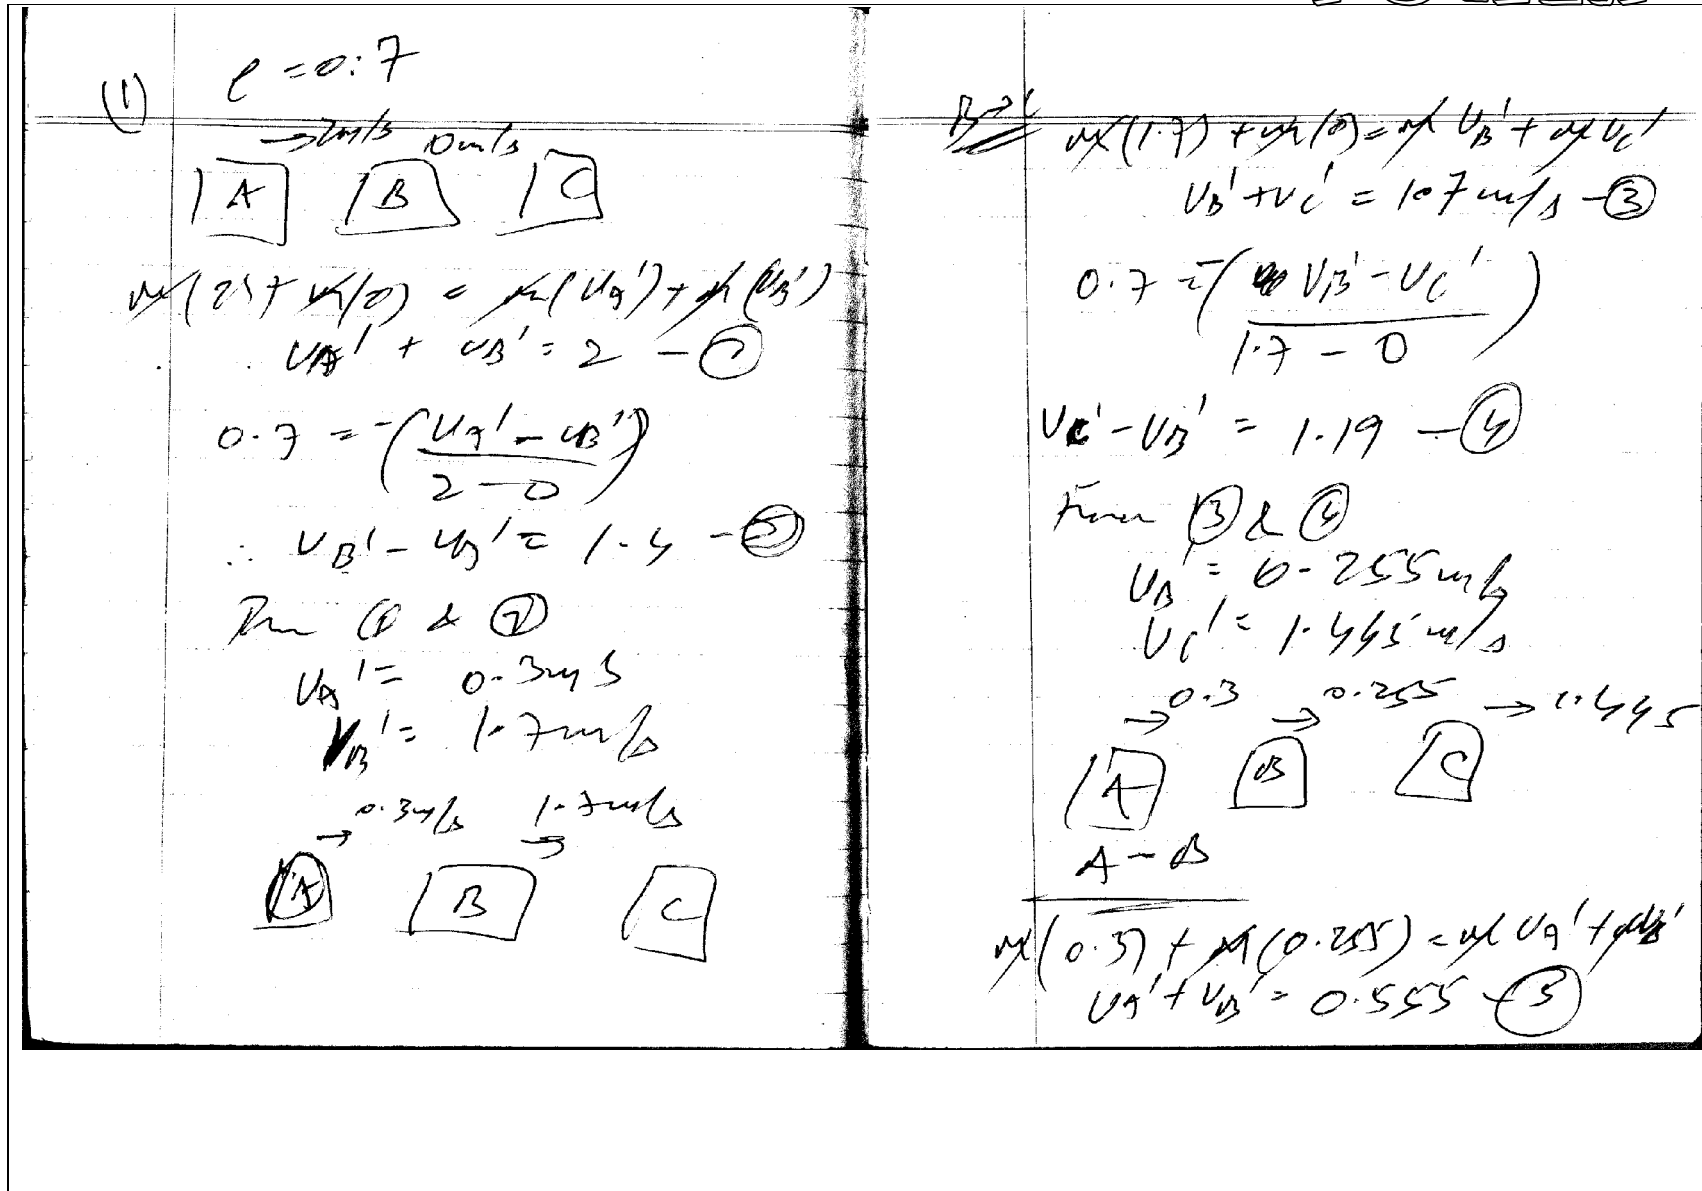 (1) e = 0.7
→ 2m/s 0m/s
A B C
m(2) + m(0) = m(VA') + m(VB')
VA' + VB' = 2 - ①
0.7 = -(VA' - VB' / 2 - 0)
∴ VB' - VA' = 1.4 - ②
From ① & ②
VA' = 0.3m/s
VB' = 1.7m/s
→ 0.3m/s → 1.7m/s
A B C
B→C
m(1.7) + m(0) = m VB' + m VC'
VB' + VC' = 1.7 m/s - ③
0.7 = -(VB' - VC' / 1.7 - 0)
VC' - VB' = 1.19 - ④
From ③ & ④
VB' = 0.255 m/s
VC' = 1.445 m/s
→ 0.3 → 0.255 → 1.445
A B C
A - B
m(0.3) + m(0.255) = m VA' + m VB'
VA' + VB' = 0.555 - ⑤